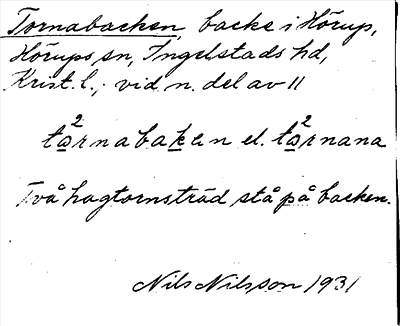 Tornabacken, backe i Hörup,
Hörups sn, Ingelstads hd,
Krist. l., vid n. del av 11
tɷ²rnabakan el. tɷ²rnana
Två hagtornsträd stå på backen.
Nils Nilsson 1931